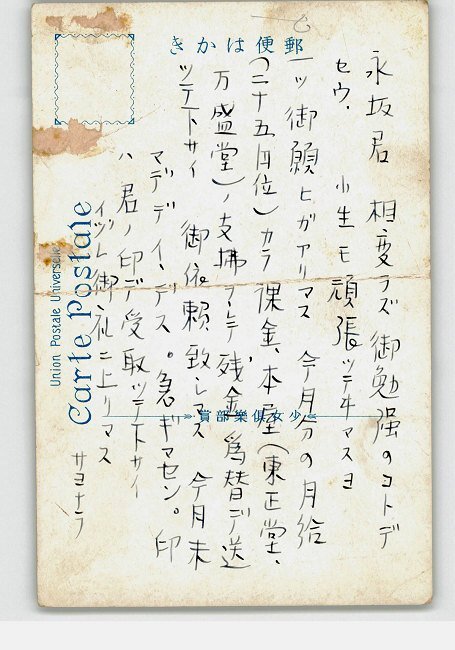 郵便はがき
Union Postale Universelle
Carte Postale
少女倶楽部賞
永坂君 相変ラズ御勉強のコトデ
セウ.
小生モ頑張ッテヰマスヨ
一ツ御願ヒガアリマス 今月分の月給
(二十五円位)カラ課金、本屋(東正堂、
万盛堂)ノ支拂マデ残金為替デ送
ッテ下サイ 御依頼致シマス 今月末
マデデイヽデス。急ギマセン。印
ハ君ノ印デ受取ッテ下サイ
イヅレ御礼ニ上リマス
サヨナラ